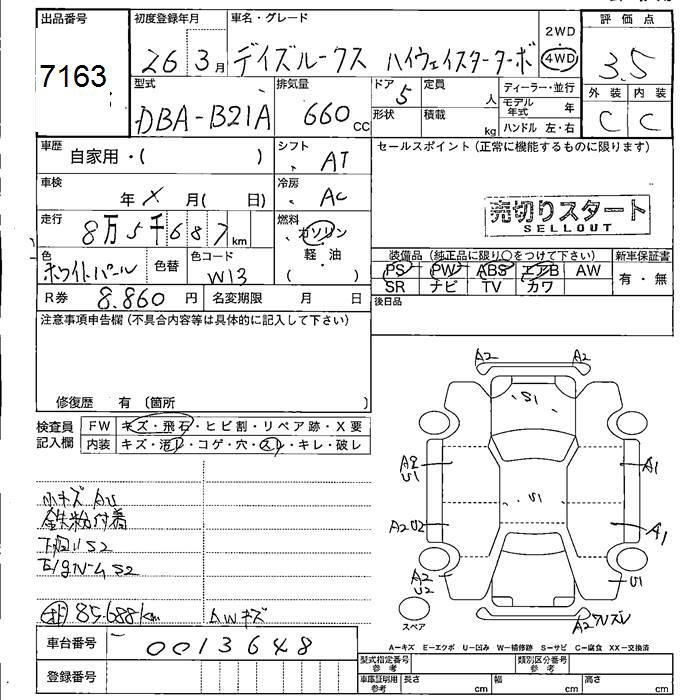 出品番号 7163
初度登録年月 26 3月
車名・グレード デイズルークス ハイウェイスターターボ
2WD
4WD
評価点 3.5
型式 DBA-B21A
排気量 660 CC
ドア 5
形状
定員 人
積載 kg
ディーラー・並行
モデル年式 年
ハンドル 左・右
外装 内装
C C
車歴 自家用・( )
シフト AT
セールスポイント(正常に機能するものに限ります)
車検 年 X 月( 日)
冷房 AC
売切りスタート
SELLOUT
走行 8万5千687 km
燃料 ガソリン
軽・油
( )
色 ホワイトパール
色替
色コード W13
装備品(純正品に限り○をつけて下さい)
新車保証書
PS PW ABS エアB AW
SR ナビ TV カワ
有・無
R券 8.860 円
名変期限 月 日
後日品
注意事項申告欄(不具合内容等は具体的に記入して下さい)
修復歴 有 (箇所
検査員記入欄
FW キズ・飛石・ヒビ割・リペア跡・X要
内装 キズ・汚レ・コゲ・穴・スレ・キレ・破レ
小キズ AU
鉄粉付着
下回りS2
85.688km
AWキズ
A2 A2
S1
A2
U1
A1
S1
A2U2
A1
A2
U2
U1
A2
スペア
A-キズ E-エクボ U-凹み W-補修跡 S-サビ C-腐食 XX-交換済
車台番号 0013648
登録番号
型式指定番号 参考
類別区分番号 参考
車庫証明用 参考
長さ cm
幅 cm
高さ cm